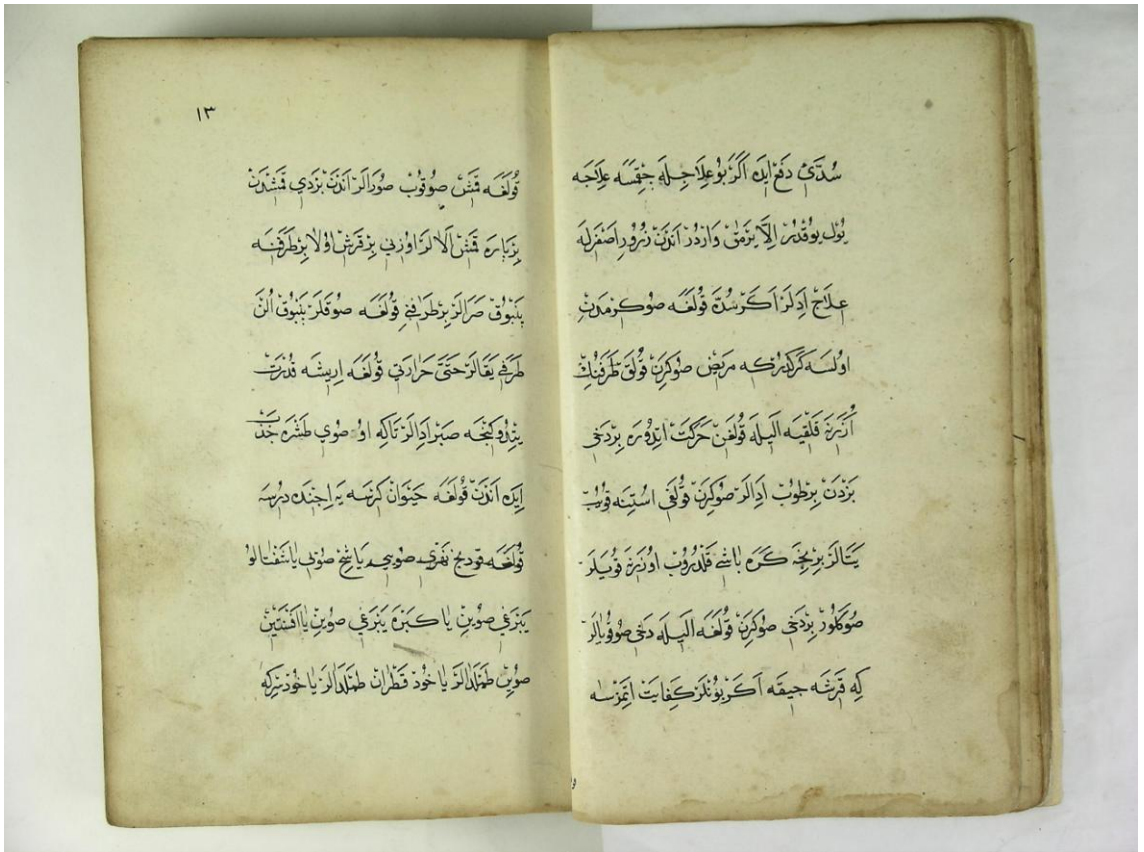 سُدَّىِٔ دَفْع ايدَه اَكَرْ بُو عِلَاجِلَه جِقْمَسَه عِلَاجَه
يُولْ يُوقْدُرْ اِلَّا يَرْمَقْ وَارْدُرْ اَنْدَنْ زُرُورِ اَصْفَرْلَه
عِلَاجْ اِدَلَرْ اَكَرْ سُدَّه قُولَغَه صُو كِرْمَدَنْ
اولسَه كَرَكْدُرْكِه مَرِيضْ صُو كِرَنْ قُولَقْ طَرَفْنُكْ
اُزَرِنَه قَلْقِيَه اَلِيلَه قُولَغِنْ حَرَكَتْ اِتْدُورَه بِرْدَخِي
بَزْدَنْ بِرْ طُوبْ اِدَالَرْ صُو كِرَنْ قُولَغِي اُسْتِنَه قُويُبْ
يَتَالَرْ بِرْ نِجَه كَرَّه بَاشِي قَلْدُرُوبْ اوُزَرِنَه قُويَلَرْ
صُو كَلُورْ بِرْدَخِي صُو كِرَنْ قُولَغَه اَلِيلَه دَخِي صُو قُويَالَرْ
كِه قَرِشَه جِيقَه اَكَرْ بُونْلَرْ كِفَايَتْ اِتْمَزْسَه
١٣
قُولَغَه قَمِشْ صُوقُوبْ صُورَالَرْ اَنْدَنْ بَزْدِي قَمِشْدَنْ
بِرْ پَارَه قَمِشْ اَلَالَرْ اوُزُنِي بِرْ قَرِشْ اوُلَا بِرْ طَرَفِنَه
پَنْبُوقْ صَرَالَرْ بِرْ طَرَفِي قُولَغَه صُوقَلَرْ پَنْبُوقْ اُلَنْ
طَرَفِي يَقَالَرْ حَتَّى حَرَارَتِي قُولَغَه اِرِيشَه قُدْرَتْ
يِتْدُوكِنْجَه صَبْر اِدَالَرْ تَاكِه اوُ صُوي طَشْرَه جَذْبْ
ايدَه اَنْدَنْ قُولَغَه حَيْوَانْ كِرْسَه يَه اِجِنْدَه دُرِسَه
قُولَغَه فُودَنَجْ نَهْرِي صُويِي يَا شِيحْ صُوني يَا شَفْتَالُو
يَپْرَغِي صُوينْ يَا كَبَرَه يَپْرَغِي صُوينْ يَا اَفْسَنْتِينْ
صُوينْ طَمْلَدَالَرْ يَا خُودْ قَطْرَانْ طَمْلَدَالَرْ يَا خُودْ سِرْكَه